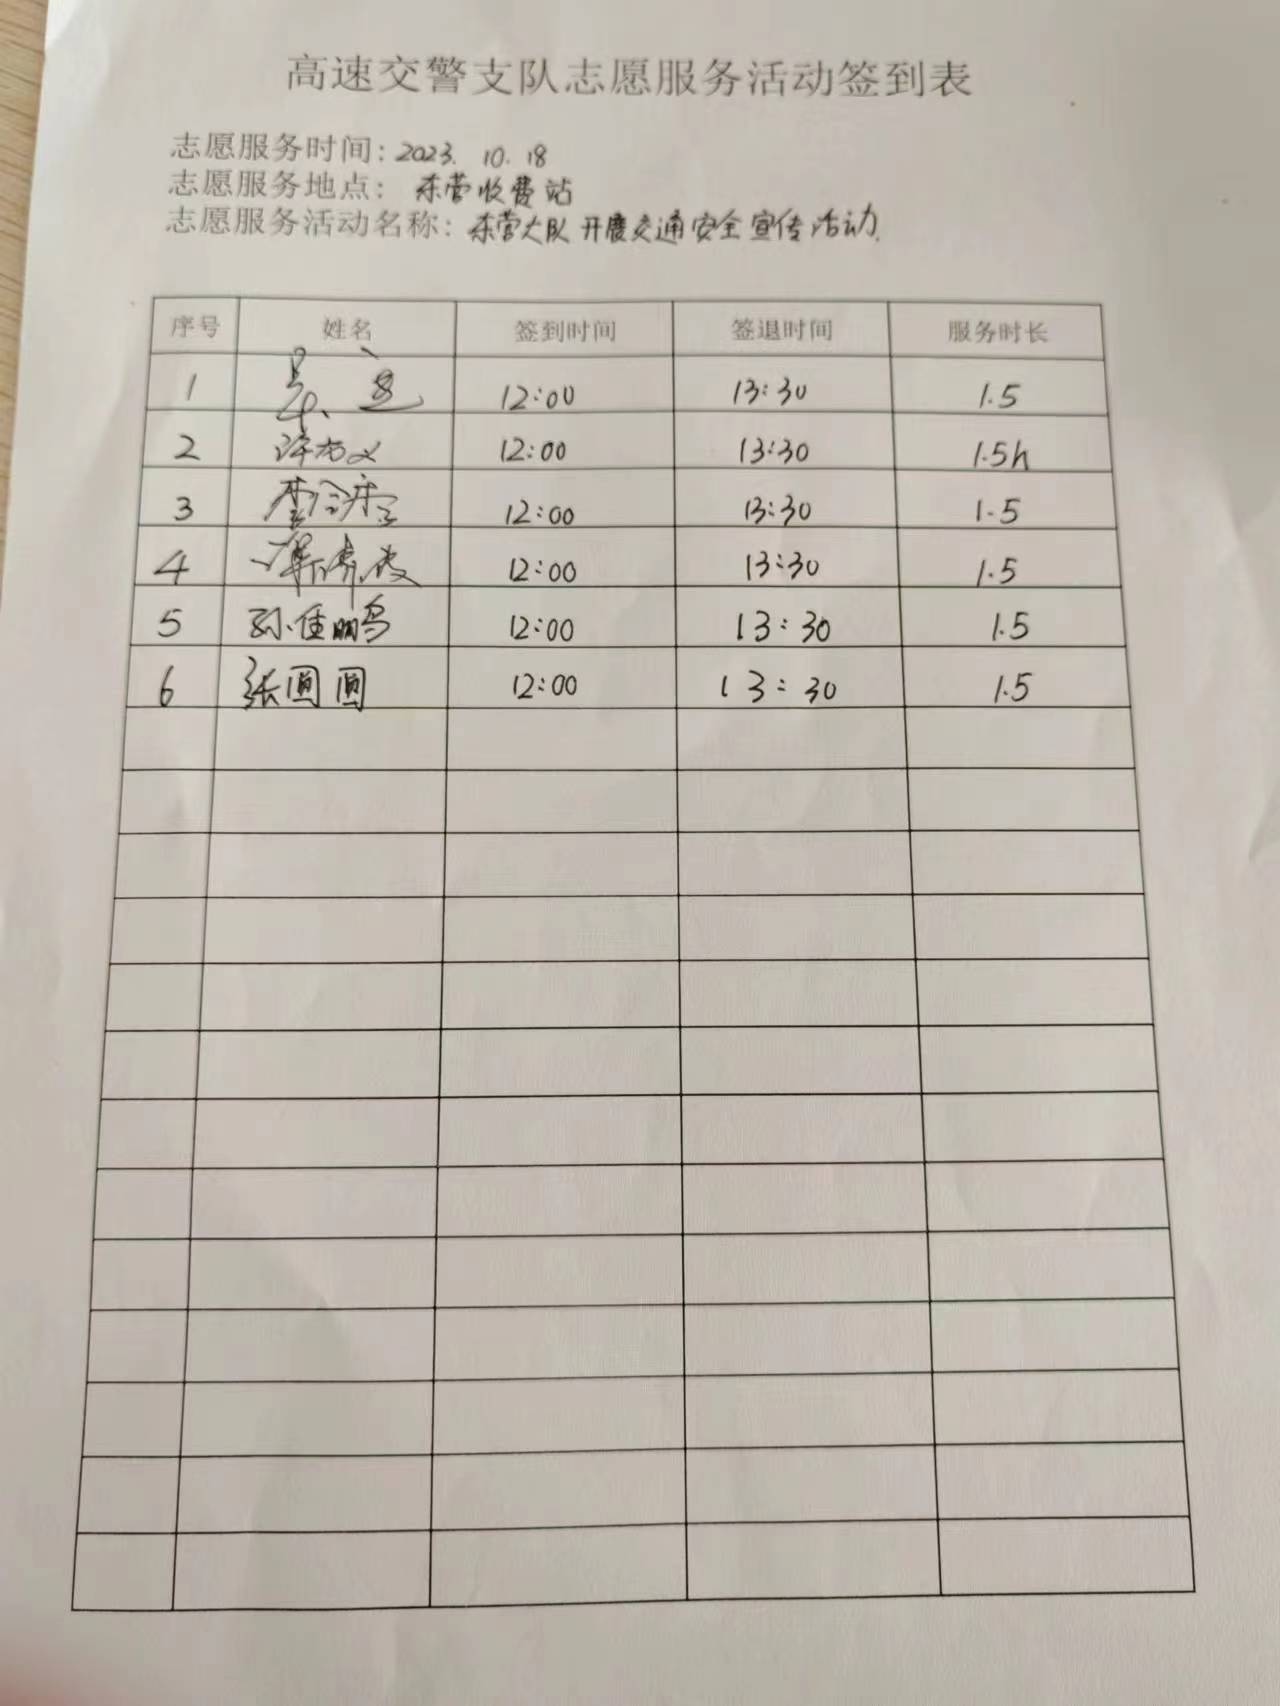 高速交警支队志愿服务活动签到表
志愿服务时间：2023. 10. 18
志愿服务地点： 东营收费站
志愿服务活动名称：东营大队开展交通安全宣传活动.
序号 姓名 签到时间 签退时间 服务时长
1 12:00 13:30 1.5
2 12:00 13:30 1.5h
3 12:00 13:30 1.5
4 12:00 13:30 1.5
5 孙佳鹏 12:00 13:30 1.5
6 张圆圆 12:00 13:30 1.5